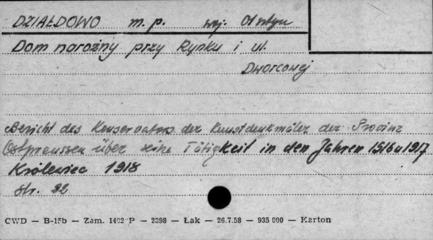 DZIAŁDOWO m.p. woj. Olsztyn
Dom narożny przy Rynku i ul.
Dworcowej
Bericht des Konservators der Kunstdenkmäler der Provinz
Ostpreussen über seine Tätigkeit in den Jahren 1916u1917
Królewiec 1918
str. 92
CWD — B-15b — Zam. 1402 P — 2398 — Łak — 26.7.58 — 935 000 — Karton